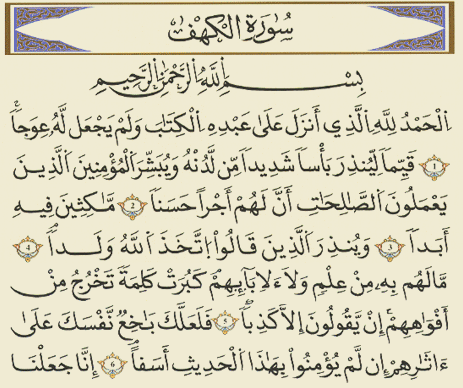 سُورَةُ الكَهْفِ
بِسْمِ اللَّهِ الرَّحْمَٰنِ الرَّحِيمِ
اِ۬لْحَمْدُ لِلهِ اِ۬لَّذِي أَنزَلَ عَلَىٰ عَبْدِهِ اِ۬لْكِتَٰبَ وَلَمْ يَجْعَل لَّهُۥ عِوَجاًۖ
١ قَيِّماً لِّيُنذِرَ بَأْساً شَدِيداً مِّن لَّدُنْهُ وَيُبَشِّرَ اَ۬لْمُؤْمِنِينَ اَ۬لَّذِينَ
يَعْمَلُونَ اَ۬لصَّٰلِحَٰتِ أَنَّ لَهُمْ أَجْراً حَسَناً ٢ مَّٰكِثِينَ فِيهِ
أَبَداً ٣ وَيُنذِرَ اَ۬لَّذِينَ قَالُوا۟ اُ۪تَّخَذَ اَ۬للَّهُ وَلَداً ٤
مَّا لَهُم بِهِۦ مِنْ عِلْمٍ وَلَا لِأٓبَآئِهِمْۖ كَبُرَتْ كَلِمَةً تَخْرُجُ مِنْ
أَفْوَٰهِهِمْۖ إِنْ يَّقُولُونَ إِلَّا كَذِباًۖ ٥ فَلَعَلَّكَ بَٰخِعٌ نَّفْسَكَ عَلَىٰ
ءَاثَٰرِهِمْ إِن لَّمْ يُؤْمِنُوا۟ بِهَٰذَا اَ۬لْحَدِيثِ أَسَفاًۖ ٦ إِنَّا جَعَلْنَا